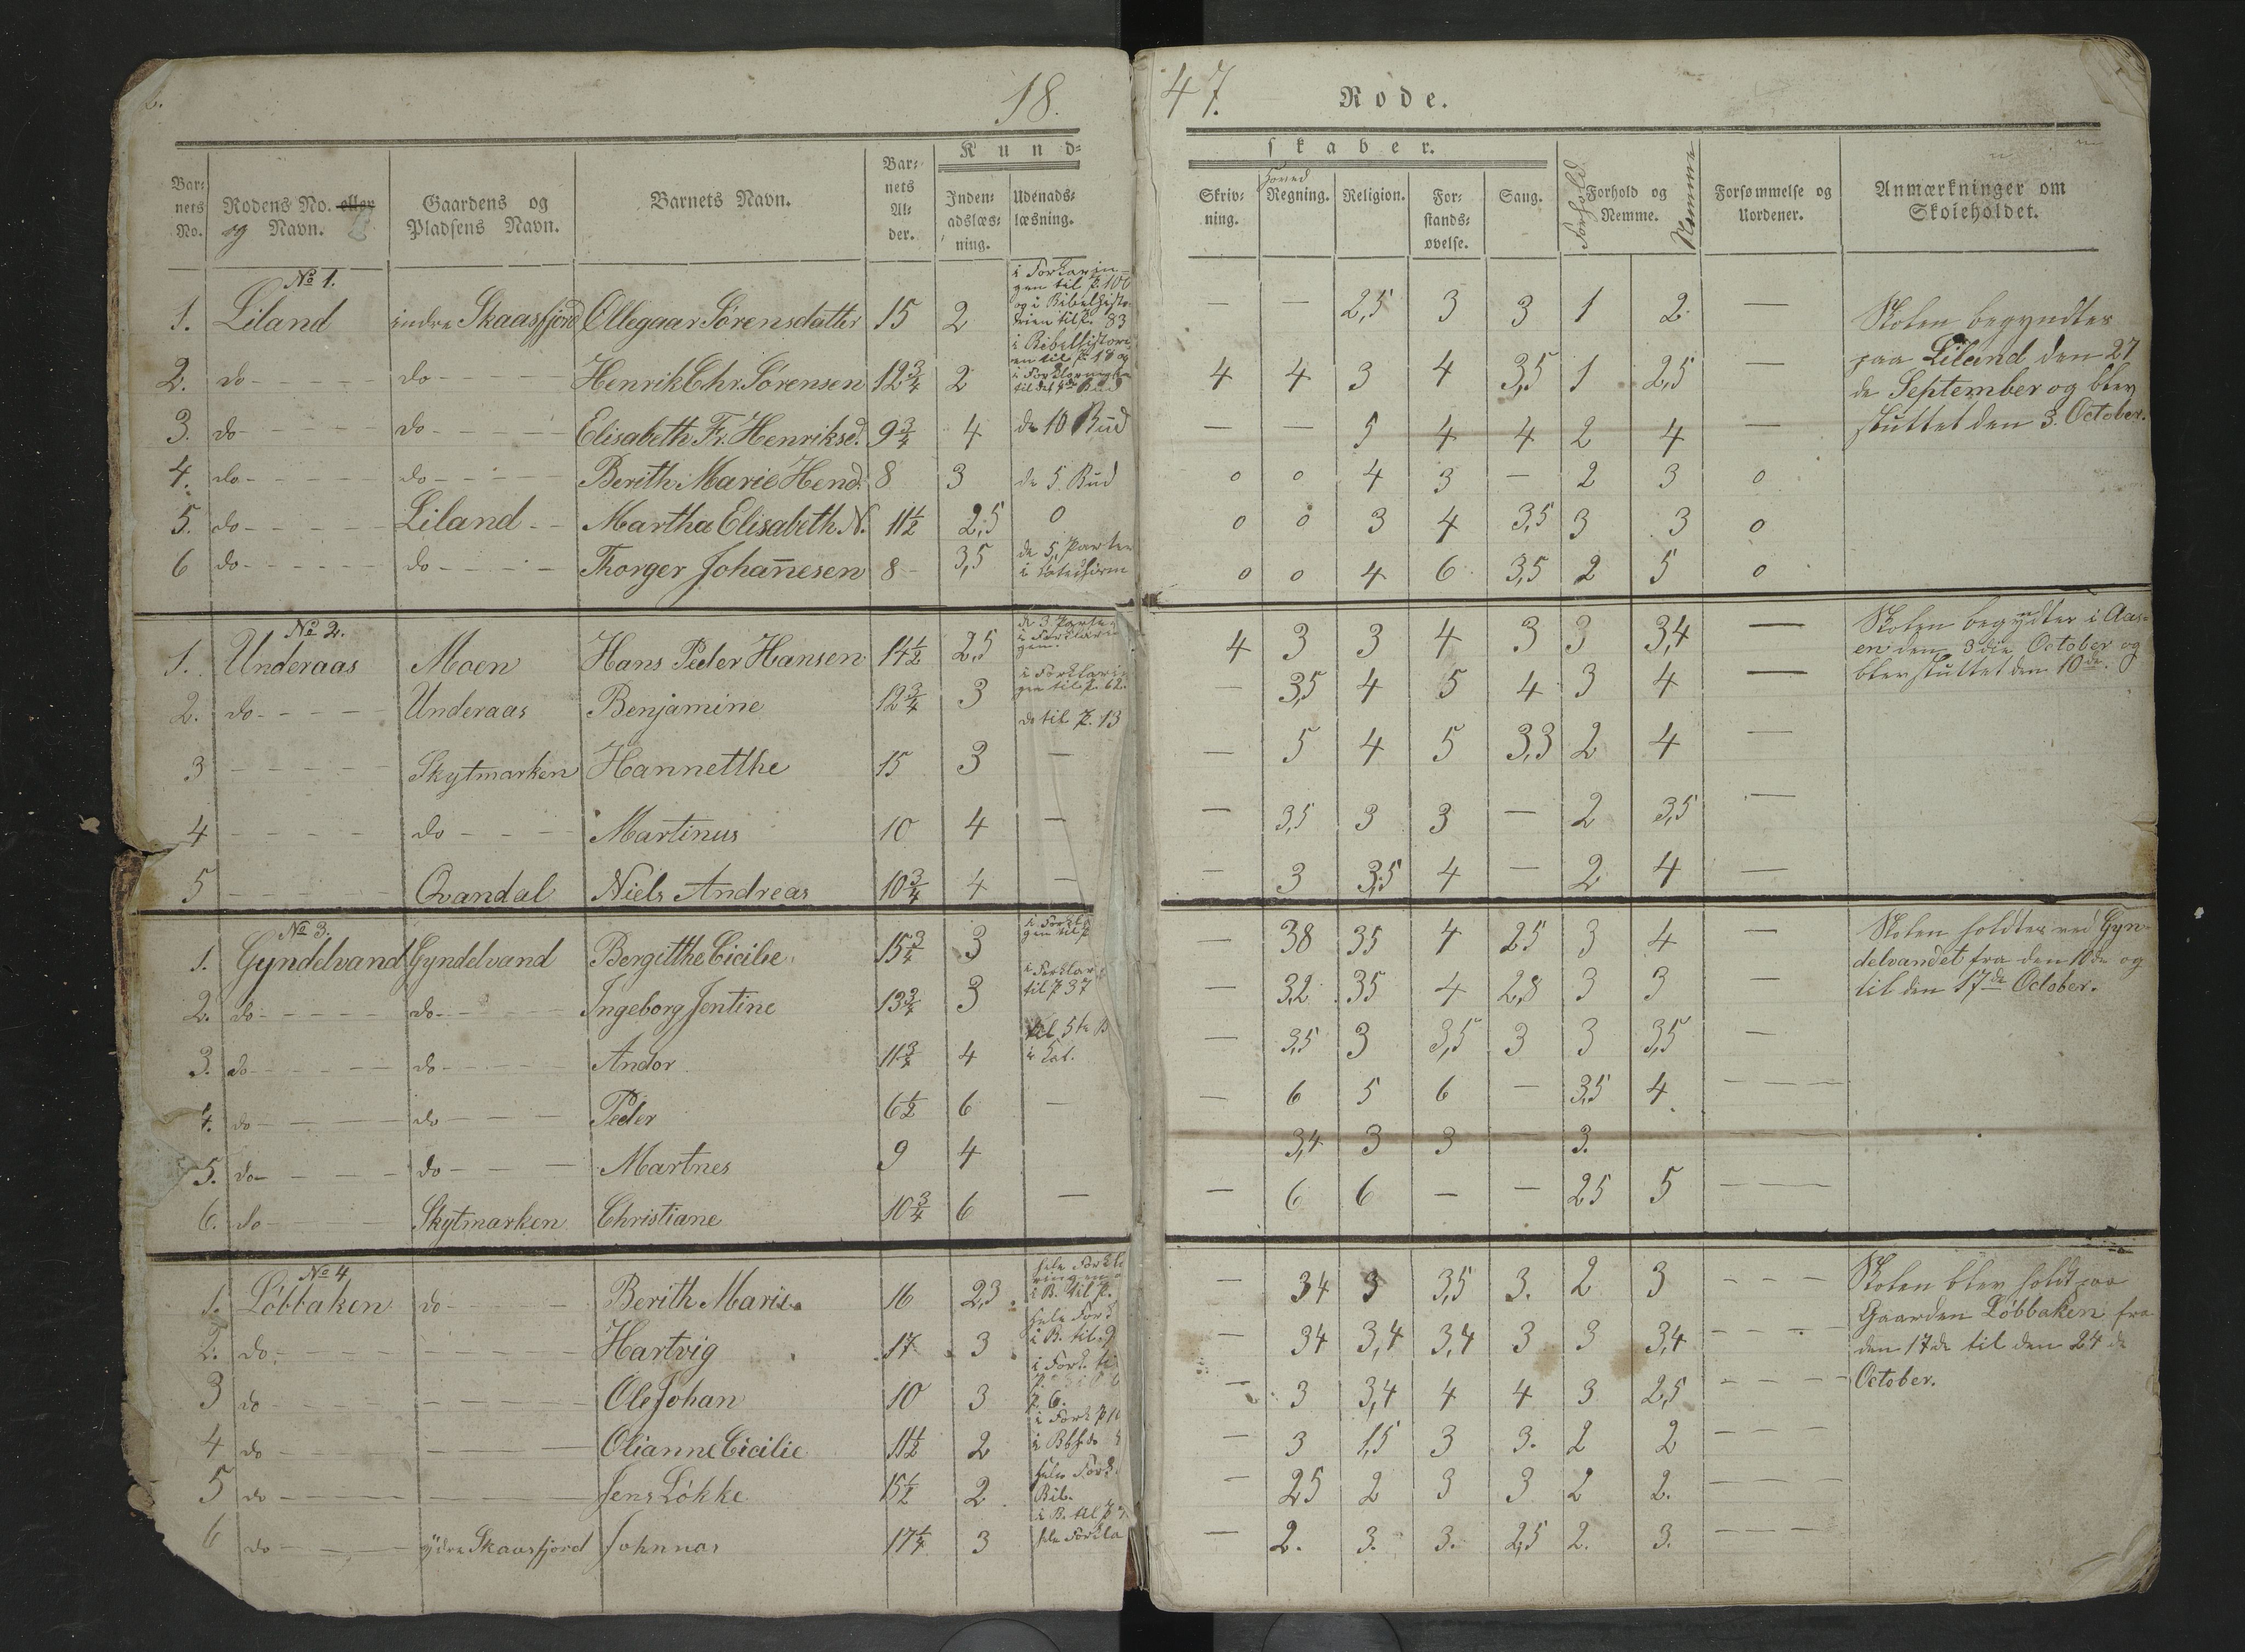 18.
Kund=
Bar=
nets
No.
Rodens No. eller
og Navn.
Gaardens og
Pladsens Navn.
Barnets Navn.
Bar=
nets
Al=
der.
Inden=
adslæs=
ning.
Udenads=
læsning.
No 1.
1. Liland indre Skaasfjord Ollegaar Sørensdatter 15 2 i Forklarin-
gen til P. 100
og i Bibelhisto-
rien til P. 83
2. do do Henrik Chr. Sørensen 12 3/4 2 i Bibelhistori-
en til P. 18 og
til det 4de Bud
3. do do Elisabeth Fr. Henriksd. 9 3/4 4 de 10 Bud
4. do do Berith Marie Hend. 8 3 de 5 Bud
5. do Liland Martha Elisabeth N. 11 1/2 2,5 0
6 do do Thorger Johan̄esen 8 3,5 de 5 Parter
No 2.
1. Underaas Moen Hans Peder Hansen 14 1/2 2,5 de 3 Parter
i Forklarin
gen.
2. do Underaas Benjamine 12 3/4 3 i Forklarin
gen til P. 62.
do til P. 13
3 Skytmarken Hannetthe 15 3 —
4 do Martinus 10 4 —
5 Qvandal Niels Andreas 10 3/4 4 —
No 3.
1. Gyndelvand Gyndelvand Bergitthe Cicilie 15 3/4 3 i Forkla
gen til P
2. do do Ingeborg Jentine 13 3/4 3 i Forklar
til P 37
3. do do Andor 11 3/4 4 til 5te P
i Kat.
4. do do Peder 6 1/2 6 —
5. do do Martnes 9 4
6. do Skytmarken Christiane 10 3/4 6 —
No 4
1. Løbbaken do Berith Marie 16 2,3 hele Forkla
ringen
i B. til P.
2. do Hartvig 17 3 hele Fork
i B. til 9
3 do Ole Johan 10 3 i Fork. til
P 6.
4 do Olianne Cicilie 11 1/2 2 i Fork P 10
5 do Jens Løkke 15 1/2 2 hele Fork.
Bib.
6 do ydre Skaasfjord Johnnas 17 1/4 3 i B. til P
hele Forkla
47. Rode.
skaber.
Skriv=
ning.
Hoved
Regning.
Religion.
For=
stands=
øvelse.
Sang.
Forhold
Forhold og
Nemme.
Nemme
Forsømmelse og
Uordener.
Anmærkninger om
Skoleholdet.
— — 2,5 3 3 1 2 —
4 4 3 4 3,5 1 2,5 —
— — 5 4 4 2 4 —
0 0 4 3 — 2 3 0
0 0 3 4 3,5 3 3 0
0 0 4 6 3,5 2 5 0
Skolen begyndtes
paa Liland den 27
de September og blev
sluttet den 3. October.
4 3 3 4 3 3 3,4 —
— 3,5 4 5 4 3 4 —
— 5 4 5 3,3 2 4 —
— 3,5 3 3 — 2 3,5 —
— 3 3,5 4 — 2 4 —
Skolen begyndtes i Aas-
en den 3die October og
blev sluttet den 10de.
— 38 35 4 25 3 4 —
— 3,2 35 4 2,8 3 3 —
— 3,5 3 3,5 3 3 3,5 —
— 6 5 6 — 3,5 4 — — —
3,4 3 3 — 3. — — —
— 6 6 — — 25 5 — — —
Skolen holdtes ved Gyn-
delvandet fra den 10de og
til den 17de October.
— 34 3 3,5 3. 2 3 — — —
— 34 3,4 3,4 3 3 3,4 — — —
— 3 3,4 4 4 3 2,5 — — —
— 3 1,5 3 3. 2 2 — — —
— 25 2 3 3 2 2. — — —
— 2. 3. 3. 2,5 2. 3. — — —
Skolen blev holdt paa
Gaarden Løbbaken fra
den 17de til den 24de
October.